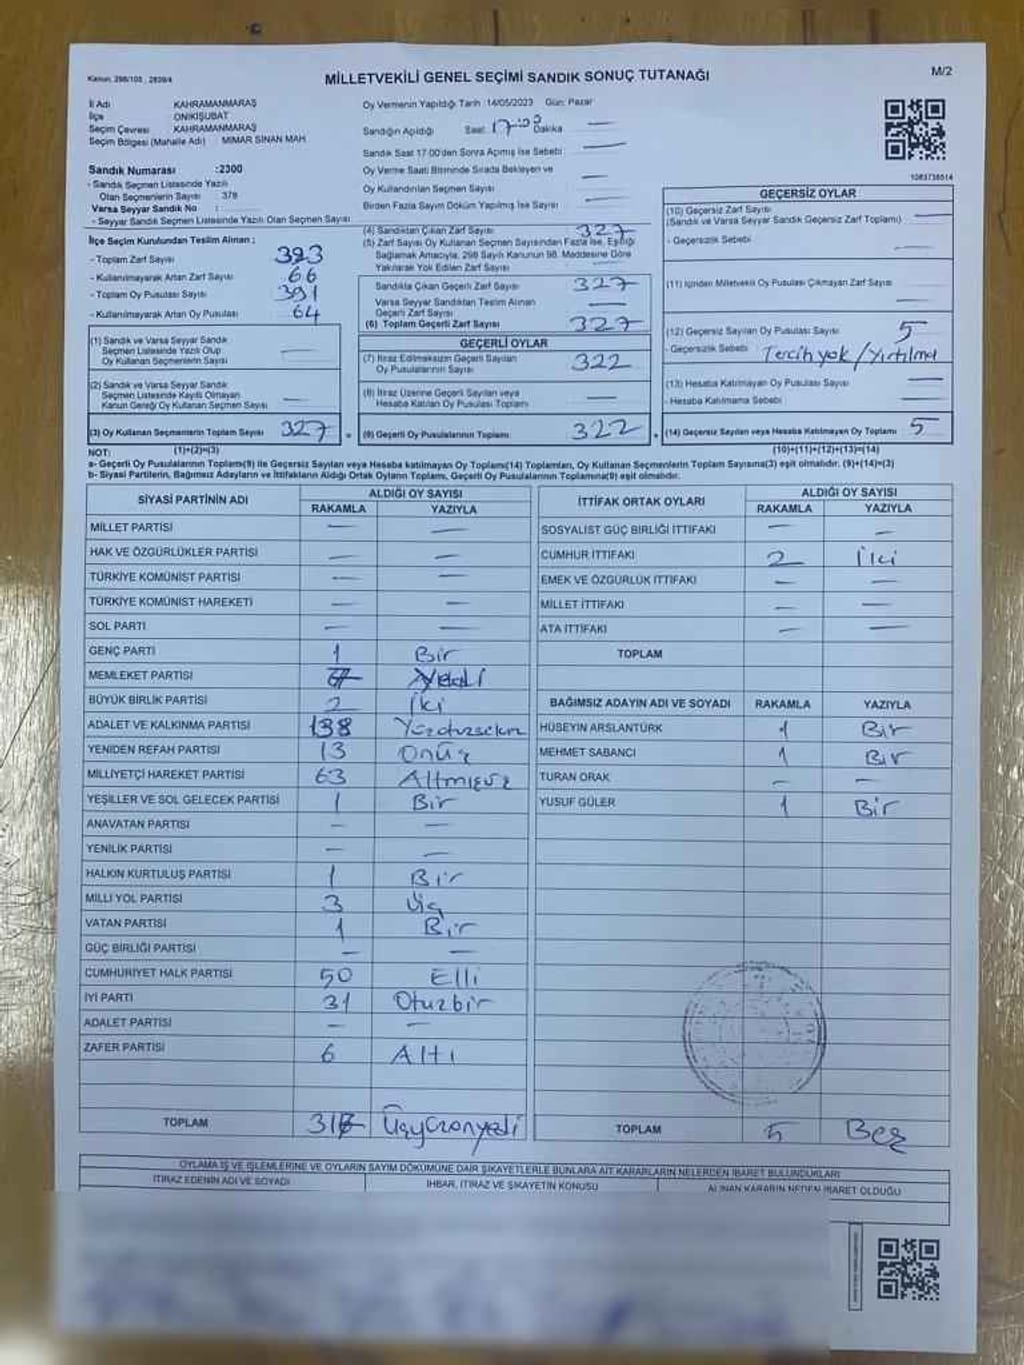 Kanun, 298/105 , 2839/4
MİLLETVEKİLİ GENEL SEÇİMİ SANDIK SONUÇ TUTANAĞI
M/2
İl Adı KAHRAMANMARAŞ
İlçe ONİKİŞUBAT
Seçim Çevresi KAHRAMANMARAŞ
Seçim Bölgesi (Mahalle Adı) MİMAR SİNAN MAH
Sandık Numarası :2300
- Sandık Seçmen Listesinde Yazılı
Olan Seçmenlerin Sayısı : 378
Varsa Seyyar Sandık No :
- Seyyar Sandık Seçmen Listesinde Yazılı Olan Seçmen Sayısı
İlçe Seçim Kurulundan Teslim Alınan ;
- Toplam Zarf Sayısı 393
- Kullanılmayarak Artan Zarf Sayısı 66
- Toplam Oy Pusulası Sayısı 391
- Kullanılmayarak Artan Oy Pusulası 64
(1) Sandık ve Varsa Seyyar Sandık
Seçmen Listesinde Yazılı Olup
Oy Kullanan Seçmenlerin Sayısı —
(2) Sandık ve Varsa Seyyar Sandık
Seçmen Listesinde Kayıtlı Olmayan
Kanun Gereği Oy Kullanan Seçmen Sayısı —
(3) Oy Kullanan Seçmenlerin Toplam Sayısı 327
Oy Vermenin Yapıldığı Tarih :14/05/2023 Gün: Pazar
Sandığın Açıldığı Saat: 17:00 Dakika —
Sandık Saat 17:00'den Sonra Açımış İse Sebebi —
Oy Verme Saati Bitiminde Sırada Bekleyen ve
Oy Kullandırılan Seçmen Sayısı —
Birden Fazla Sayım Döküm Yapılmış İse Sayısı —
(4) Sandıktan Çıkan Zarf Sayısı 327
(5) Zarf Sayısı Oy Kullanan Seçmen Sayısından Fazla ise, Eşitliği
Sağlamak Amacıyla, 298 Sayılı Kanunun 98. Maddesine Göre
Yakılarak Yok Edilen Zarf Sayısı
Sandıkla Çıkan Geçerli Zarf Sayısı 327
Varsa Seyyar Sandıktan Teslim Alınan
Geçerli Zarf Sayısı —
(6) Toplam Geçerli Zarf Sayısı 327
GEÇERLİ OYLAR
(7) İtiraz Edilmeksizin Geçerli Sayılan
Oy Pusulalarının Sayısı 322
(8) İtiraz Üzerine Geçerli Sayılan veya
Hesaba Katılan Oy Pusulası Toplamı —
= (9) Geçerli Oy Pusulalarının Toplamı 322
1083738514
GEÇERSİZ OYLAR
(10) Geçersiz Zarf Sayısı
(Sandık ve Varsa Seyyar Sandık Geçersiz Zarf Toplamı) —
- Geçersizlik Sebebi —
(11) İçinden Milletvekili Oy Pusulası Çıkmayan Zarf Sayısı —
(12) Geçersiz Sayılan Oy Pusulası Sayısı 5
- Geçersizlik Sebebi Tercih yok/Yırtılma
(13) Hesaba Katılmayan Oy Pusulası Sayısı —
- Hesaba Katılmama Sebebi —
+ (14) Geçersiz Sayılan veya Hesaba Katılmayan Oy Toplamı 5
NOT: (1)+(2)=(3) (10)+(11)+(12)+(13)=(14)
a- Geçerli Oy Pusulalarının Toplamı(9) ile Geçersiz Sayılan veya Hesaba katılmayan Oy Toplamı(14) Toplamları, Oy Kullanan Seçmenlerin Toplam Sayısına(3) eşit olmalıdır. (9)+(14)=(3)
b- Siyasi Partilerin, Bağımsız Adayların ve İttifakların Aldığı Ortak Oyların Toplamı, Geçerli Oy Pusulalarının Toplamına(9) eşit olmalıdır.
SİYASİ PARTİNİN ADI ALDIĞI OY SAYISI
RAKAMLA YAZIYLA
MİLLET PARTİSİ — —
HAK VE ÖZGÜRLÜKLER PARTİSİ — —
TÜRKİYE KOMÜNİST PARTİSİ — —
TÜRKİYE KOMÜNİST HAREKETİ — —
SOL PARTİ — —
GENÇ PARTİ 1 Bir
MEMLEKET PARTİSİ 7 Yedi
BÜYÜK BİRLİK PARTİSİ 2 İki
ADALET VE KALKINMA PARTİSİ 138
YENİDEN REFAH PARTİSİ 13 Onüç
MİLLİYETÇİ HAREKET PARTİSİ 63 Altmışüç
YEŞİLLER VE SOL GELECEK PARTİSİ 1 Bir
ANAVATAN PARTİSİ — —
YENİLİK PARTİSİ — —
HALKIN KURTULUŞ PARTİSİ 1 Bir
MİLLİ YOL PARTİSİ 3 Üç
VATAN PARTİSİ 1 Bir
GÜÇ BİRLİĞİ PARTİSİ — —
CUMHURİYET HALK PARTİSİ 50 Elli
İYİ PARTİ 31 Otuzbir
ADALET PARTİSİ — —
ZAFER PARTİSİ 6 Altı
TOPLAM 317 Üçyüzonyedi
İTTİFAK ORTAK OYLARI ALDIĞI OY SAYISI
RAKAMLA YAZIYLA
SOSYALİST GÜÇ BİRLİĞİ İTTİFAKI — —
CUMHUR İTTİFAKI 2 İki
EMEK VE ÖZGÜRLÜK İTTİFAKI — —
MİLLET İTTİFAKI — —
ATA İTTİFAKI — —
TOPLAM
BAĞIMSIZ ADAYIN ADI VE SOYADI RAKAMLA YAZIYLA
HÜSEYİN ARSLANTÜRK 1 Bir
MEHMET SABANCI 1 Bir
TURAN ORAK — —
YUSUF GÜLER 1 Bir
TOPLAM 5 Beş
OYLAMA İŞ VE İŞLEMLERİNE VE OYLARIN SAYIM DÖKÜMÜNE DAİR ŞİKAYETLERLE BUNLARA AİT KARARLARIN NELERDEN İBARET BULUNDUKLARI
İTİRAZ EDENİN ADI VE SOYADI İHBAR, İTİRAZ VE ŞİKAYETİN KONUSU ALINAN KARARIN NEDEN İBARET OLDUĞU